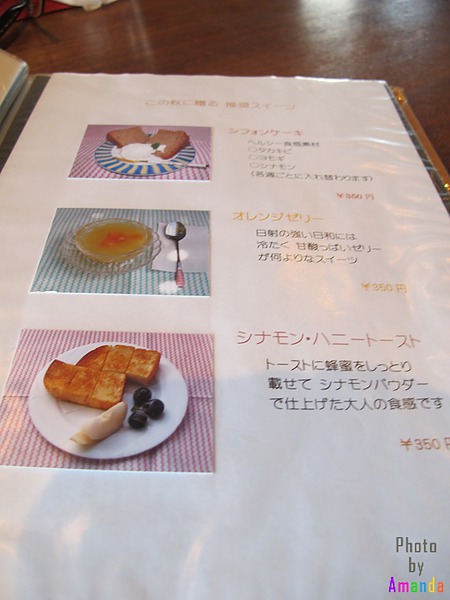 この秋に贈る 推奨スイーツ
シフォンケーキ
ヘルシー食感素材
○タカキビ
○ヨモギ
○シナモン
(各週ごとに入れ替わります)
¥350円
オレンジゼリー
日射の強い日和には
冷たく 甘酸っぱいゼリー
が何よりなスイーツ
¥350円
シナモン・ハニートースト
トーストに蜂蜜をしっとり
載せて シナモンパウダー
で仕上げた大人の食感です
¥350円
Photo
by
Amanda